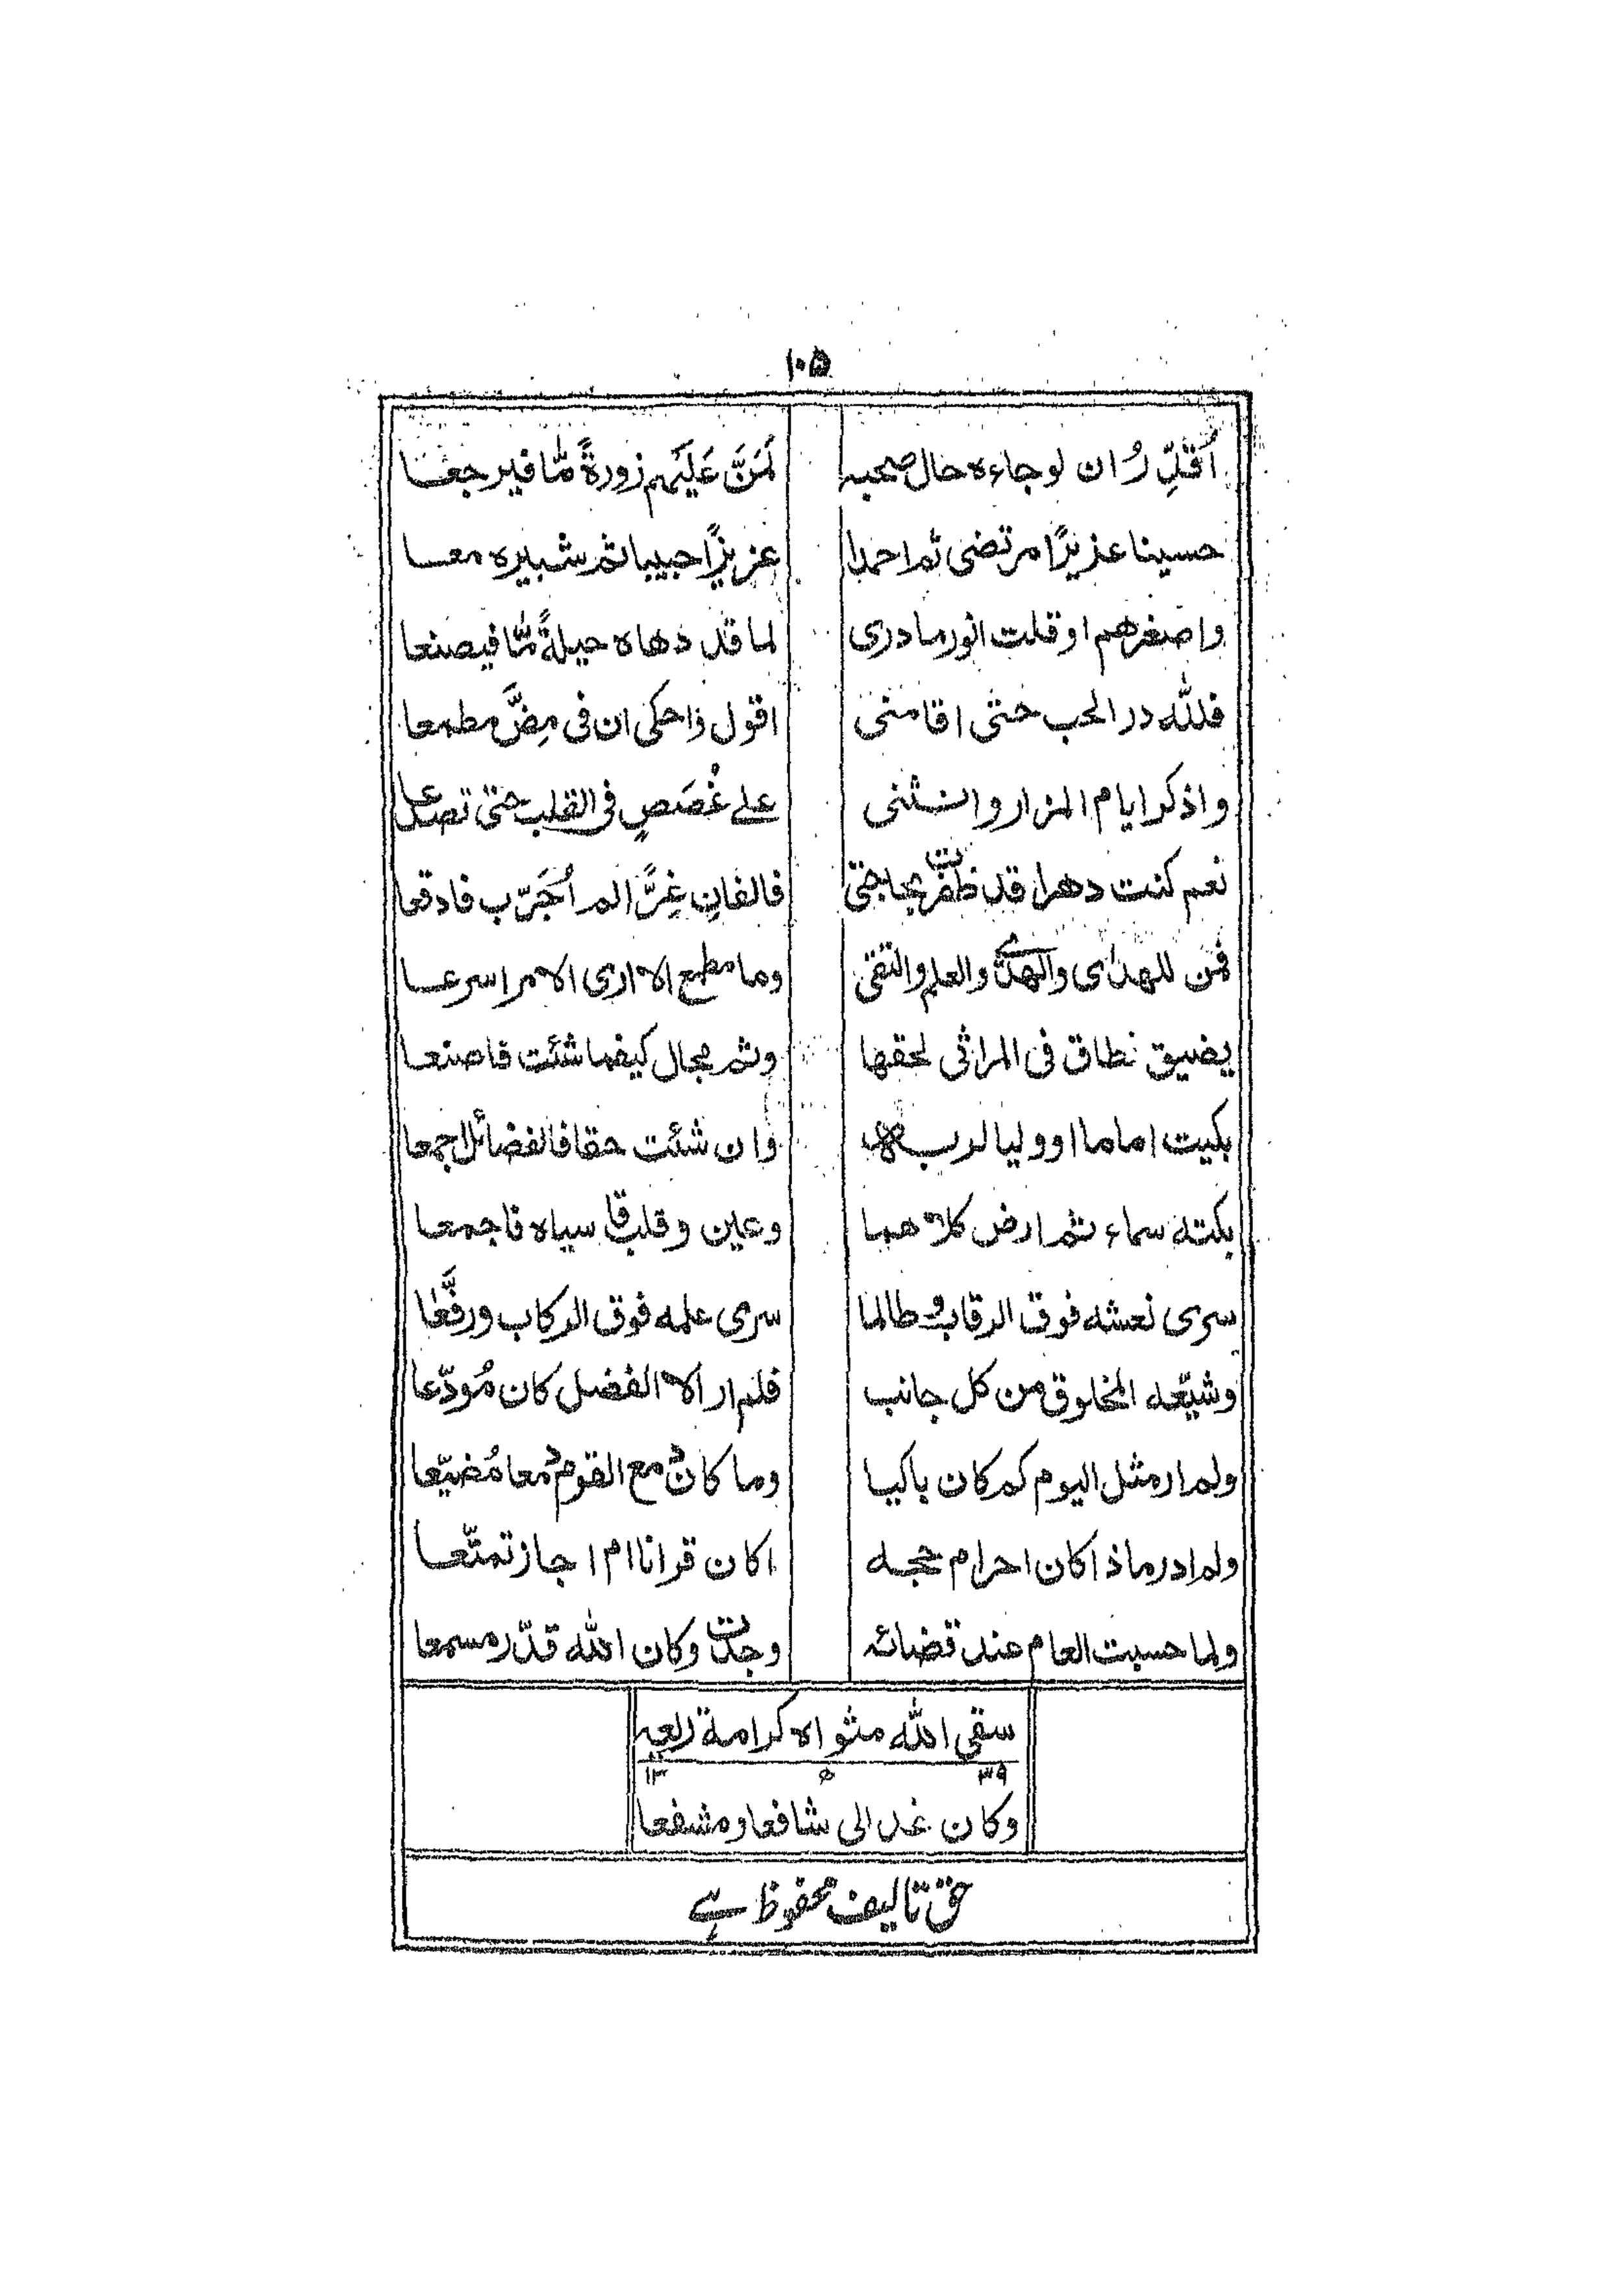 ۱۰۵
اُقَدِّرُ ان لو جاءه حال صحبه لَمَنَّ عَلَيهم زورةً مّا فيرجعا
حسينا عزيزًا مرتضى ثم احمدا عزيزًا حبيبا ثم شبيره معا
واصغرهم او قلت انور ما درى لما قد دهاه حيلةً مّا فيصنعا
فلله در الحب حتى اقامنى اقول ذا حكى ان فى مِضَّ مطمعا
واذكر ايام المزار وانثنى على غُصَصٍ فى القلب حتى تصدعا
نعم كنت دهرا قد ظفرت بحاجتى فالفانِ غِرًّا لم اُجَرّب فادقعا
فمن للهدى والهَدى والعلم والتقى وما مطمع الا ارى الامر اسرعا
يضيق نطاق فى المراثى لحقها وثم مجال كيفما شئت فاصنعا
بكيت اماما او وليا لربه وان شئت حقا فالفضائل اجمعا
بكته سماء ثم ارض كلاهما وعين وقلب قاسياه فاجمعا
سرى نعشه فوق الرقاب وطالما سرى علمه فوق الركاب ورفَّعا
وشيّعه المخلوق من كل جانب فلم ار الا الفضل كان مُودّعا
ولم ار مثل اليوم كم كان باكيا وما كان دمع القوم دمعا مُضيّعا
ولم ادر ماذا كان احرام حجه اكان قرانا ام اجاز تمتّعا
ولما حسبت العام عند قضائه وجدت وكان الله قدّر مسمعا
سقى الله مثواه كرامة ربعه
۳۹ ھ ۱۳
وكان غدا لى شافعا ومشفعا
حق تالیف محفوظ ہے